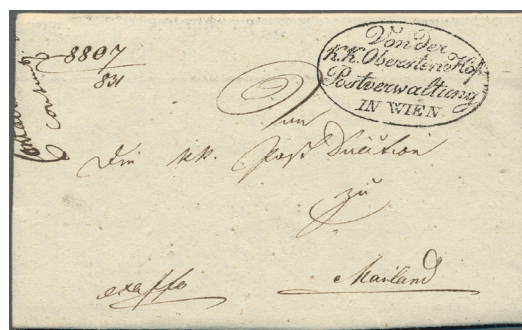 8807
831
Von der
K.K. Obersten Hof
Postverwaltung
IN WIEN.
An
Die kk. Post Direction
zu
Mailand
exoffo